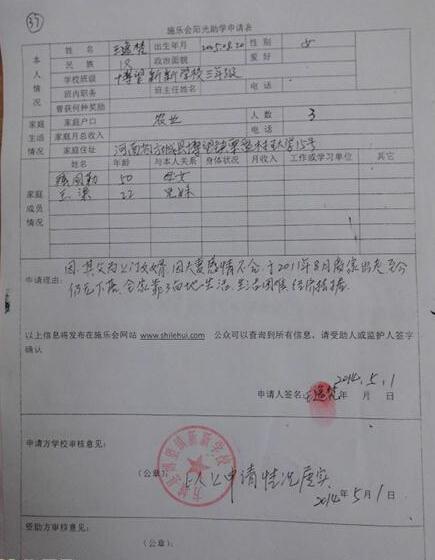 37
施乐会阳光助学申请表
本人情况
姓名 王逸梵 出生年月 2005.08.20 性别 女
民族 汉 政治面貌 爱好
学校班级 博望新新学校三年级
班内职务 班主任姓名 电话
曾获何种奖励
家庭生活情况
家庭户口 农业 人数 3
家庭月总收入 电话
家庭住址 河南省方城县博望镇 15号
家庭成员情况
姓名 年龄 与本人关系 身体状况 月收入 工作或学习单位 其它
50 母女
王 22 兄妹
申请理由:
因其父为上门女婿,因夫妻感情不合,于2011年8月离家出走至今
仍无下落,全家靠 亩地一生活,生活困难,经济拮据。
以上信息将发布在施乐会网站 www.shilehui.com 公众可以查询到所有信息,请受助人或监护人签字
确认
2014.5.1
申请人签名:王逸梵 年 月 日
申请方学校审核意见:
(公章):
以上申请情况属实
2014年5月1日
受助方审核意见:
(公章):